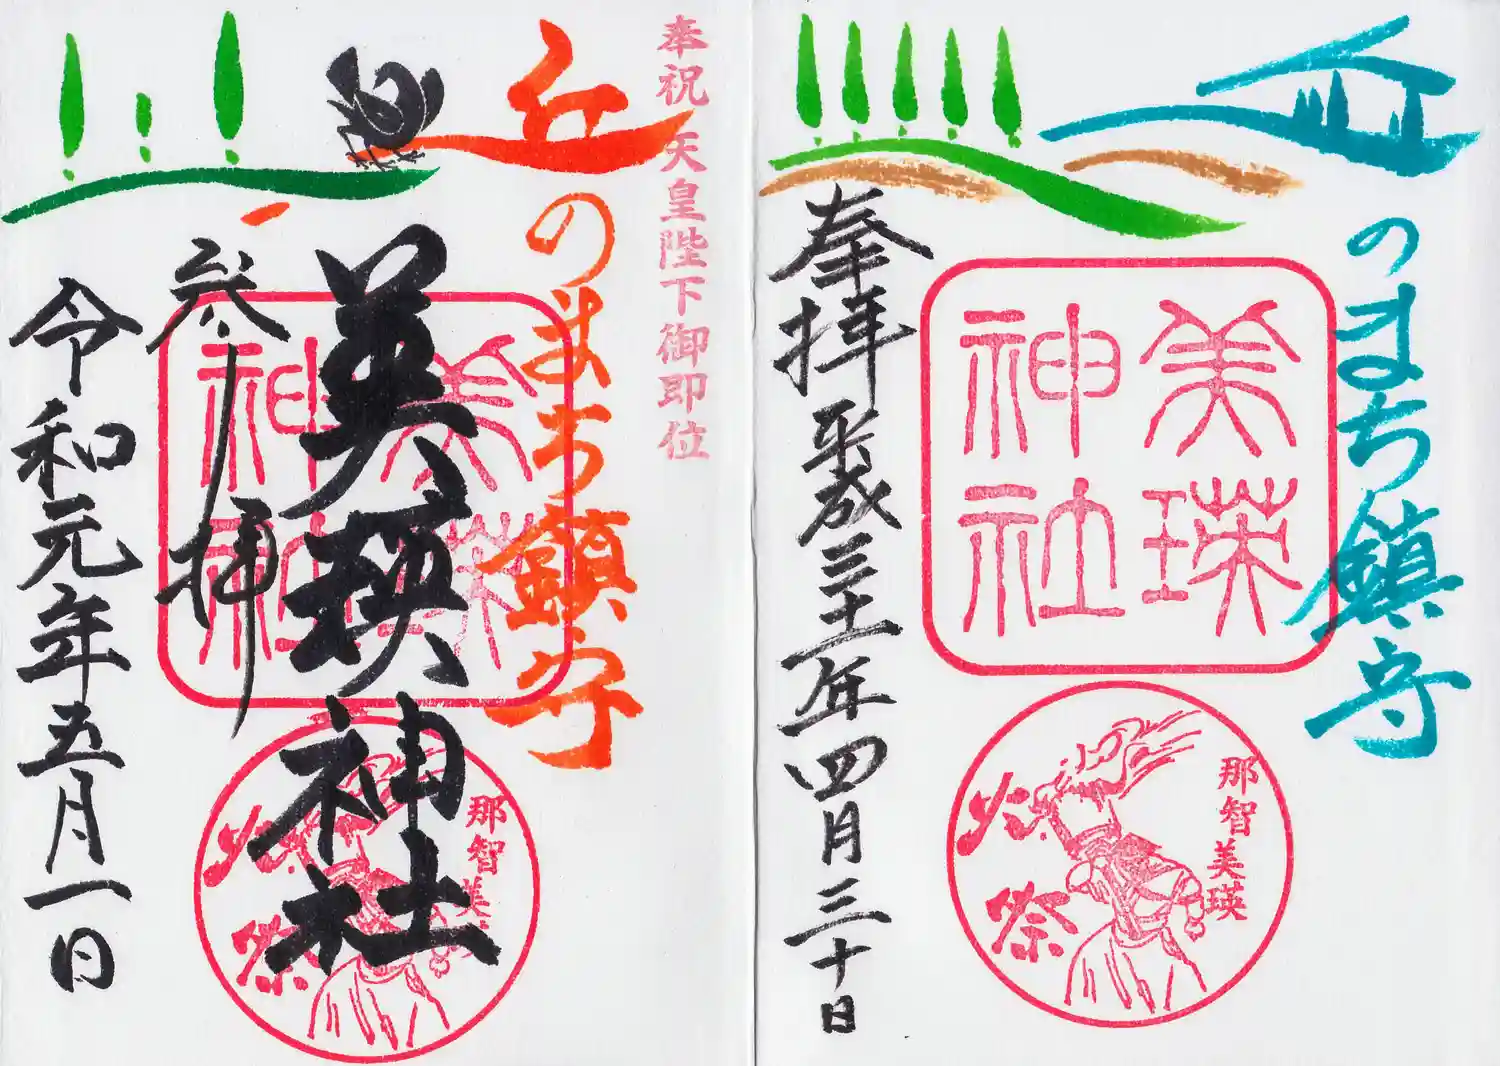 丘のまち鎮守
美瑛
神社
那智美瑛
火祭
奉拝
平成三十一年四月三十日
奉祝 天皇陛下御即位
丘のまち鎮守
美瑛神社
美瑛
神社
那智美瑛
火祭
参拝
令和元年五月一日